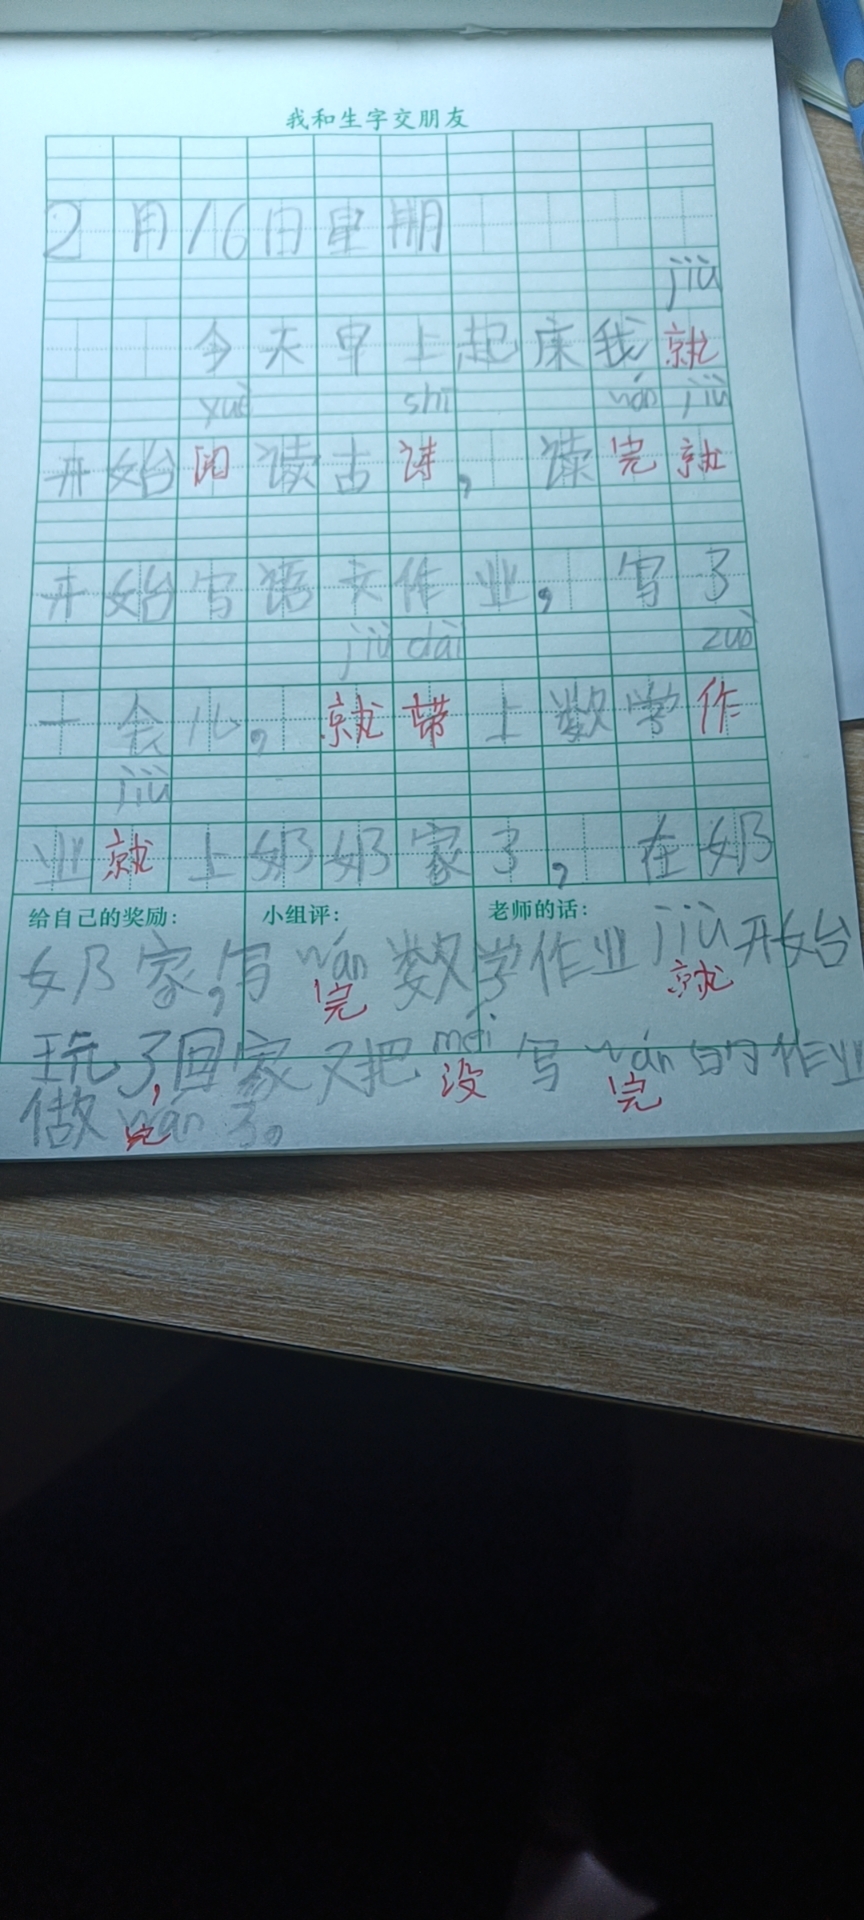 我和生字交朋友
2月16日星期
jiù
今天早上起床我就
yuè shī wán jiù
开始阅读古诗,读完就
开始写语文作业,写了
jiù dài zuò
一会儿,就带上数学作
jiù
业就上奶奶家了,在奶
给自己的奖励: 小组评: 老师的话:
奶家,写wán数学作业jiù开始
完 就
玩了,回家又把méi写wán的作业
没 完
做wán了。
完